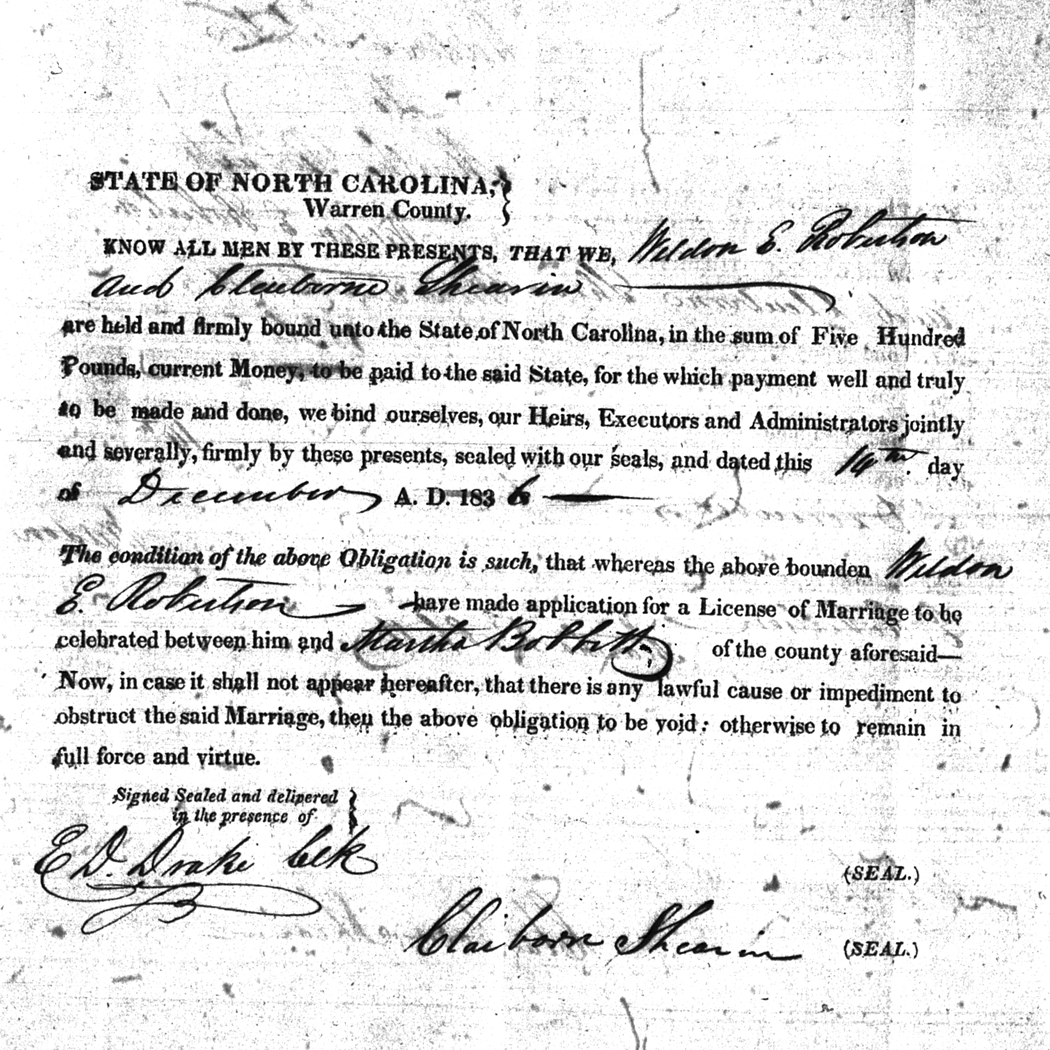 STATE OF NORTH CAROLINA,
Warren County.
KNOW ALL MEN BY THESE PRESENTS, THAT WE, Weldon E. Robertson
and Claiborne Shearin
are held and firmly bound unto the State of North Carolina, in the sum of Five Hundred
Pounds, current Money, to be paid to the said State, for the which payment well and truly
to be made and done, we bind ourselves, our Heirs, Executors and Administrators jointly
and severally, firmly by these presents, sealed with our seals, and dated this 14th. day
of December A. D. 1836
The condition of the above Obligation is such, that whereas the above bounden Weldon
E. Robertson have made application for a License of Marriage to be
celebrated between him and Martha Bobbitt; of the county aforesaid—
Now, in case it shall not appear hereafter, that there is any lawful cause or impediment to
obstruct the said Marriage, then the above obligation to be void: otherwise to remain in
full force and virtue.
Signed Sealed and delivered
in the presence of
E D. Drake Clk
(SEAL.)
Claiborn Shearin (SEAL.)